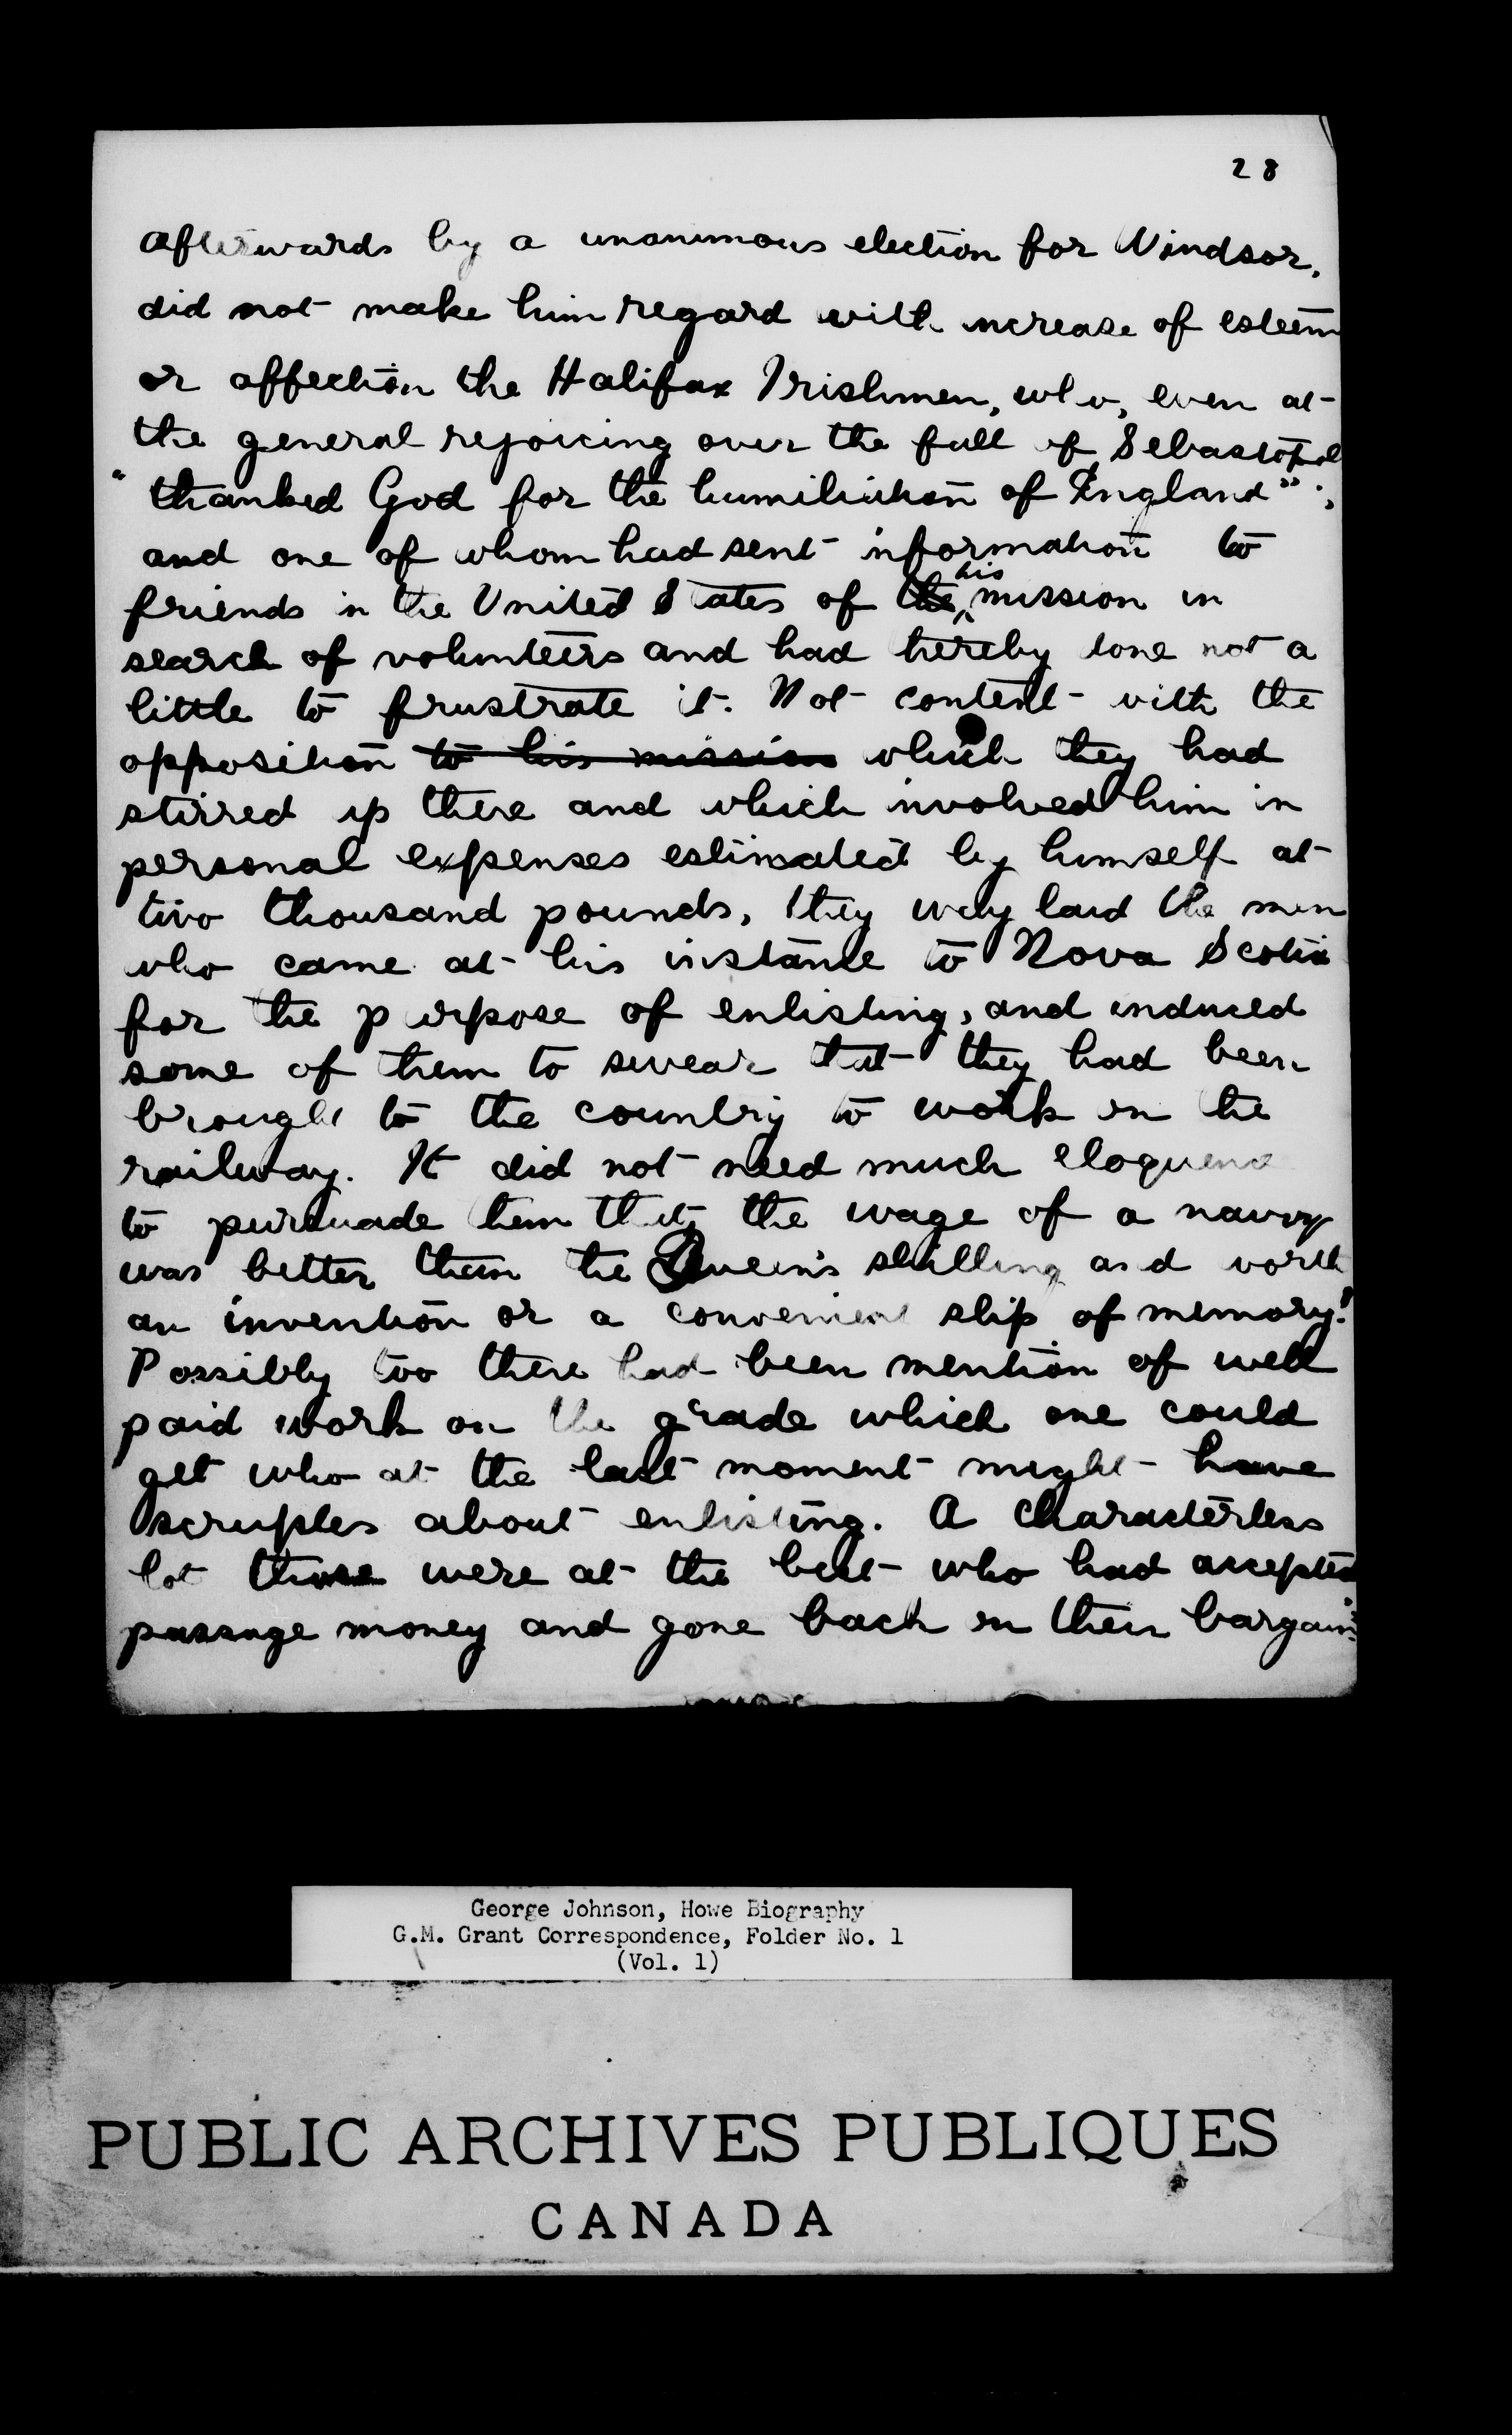 28
afterwards by a unanimous election for Windsor,
did not make him regard with increase of esteem
or affection the Halifax Irishmen, who, even at
the general rejoicing over the fall of Sebastopol
"thanked God for the humiliation of England";
and one of whom had sent information to
his
friends in the United States of the mission in
search of volunteers and had thereby done not a
little to frustrate it. Not content with the
opposition to his mission which they had
stirred up there and which involved him in
personal expenses estimated by himself at
two thousand pounds, they waylaid the men
who came at his instance to Nova Scotia
for the purpose of enlisting, and induced
some of them to swear that they had been
brought to the country to work on the
railway. It did not need much eloquence
to persuade them that the wage of a navvy
was better than the Queen's shilling and worth
an invention or a convenient slip of memory!
Possibly too there had been mention of well
paid work on the grade which one could
get who at the last moment might have
scruples about enlisting. A characterless
lot those were at the best who had accepted
passage money and gone back on their bargain.
George Johnson, Howe Biography
G.M. Grant Correspondence, Folder No. 1
(Vol. 1)
PUBLIC ARCHIVES PUBLIQUES
CANADA